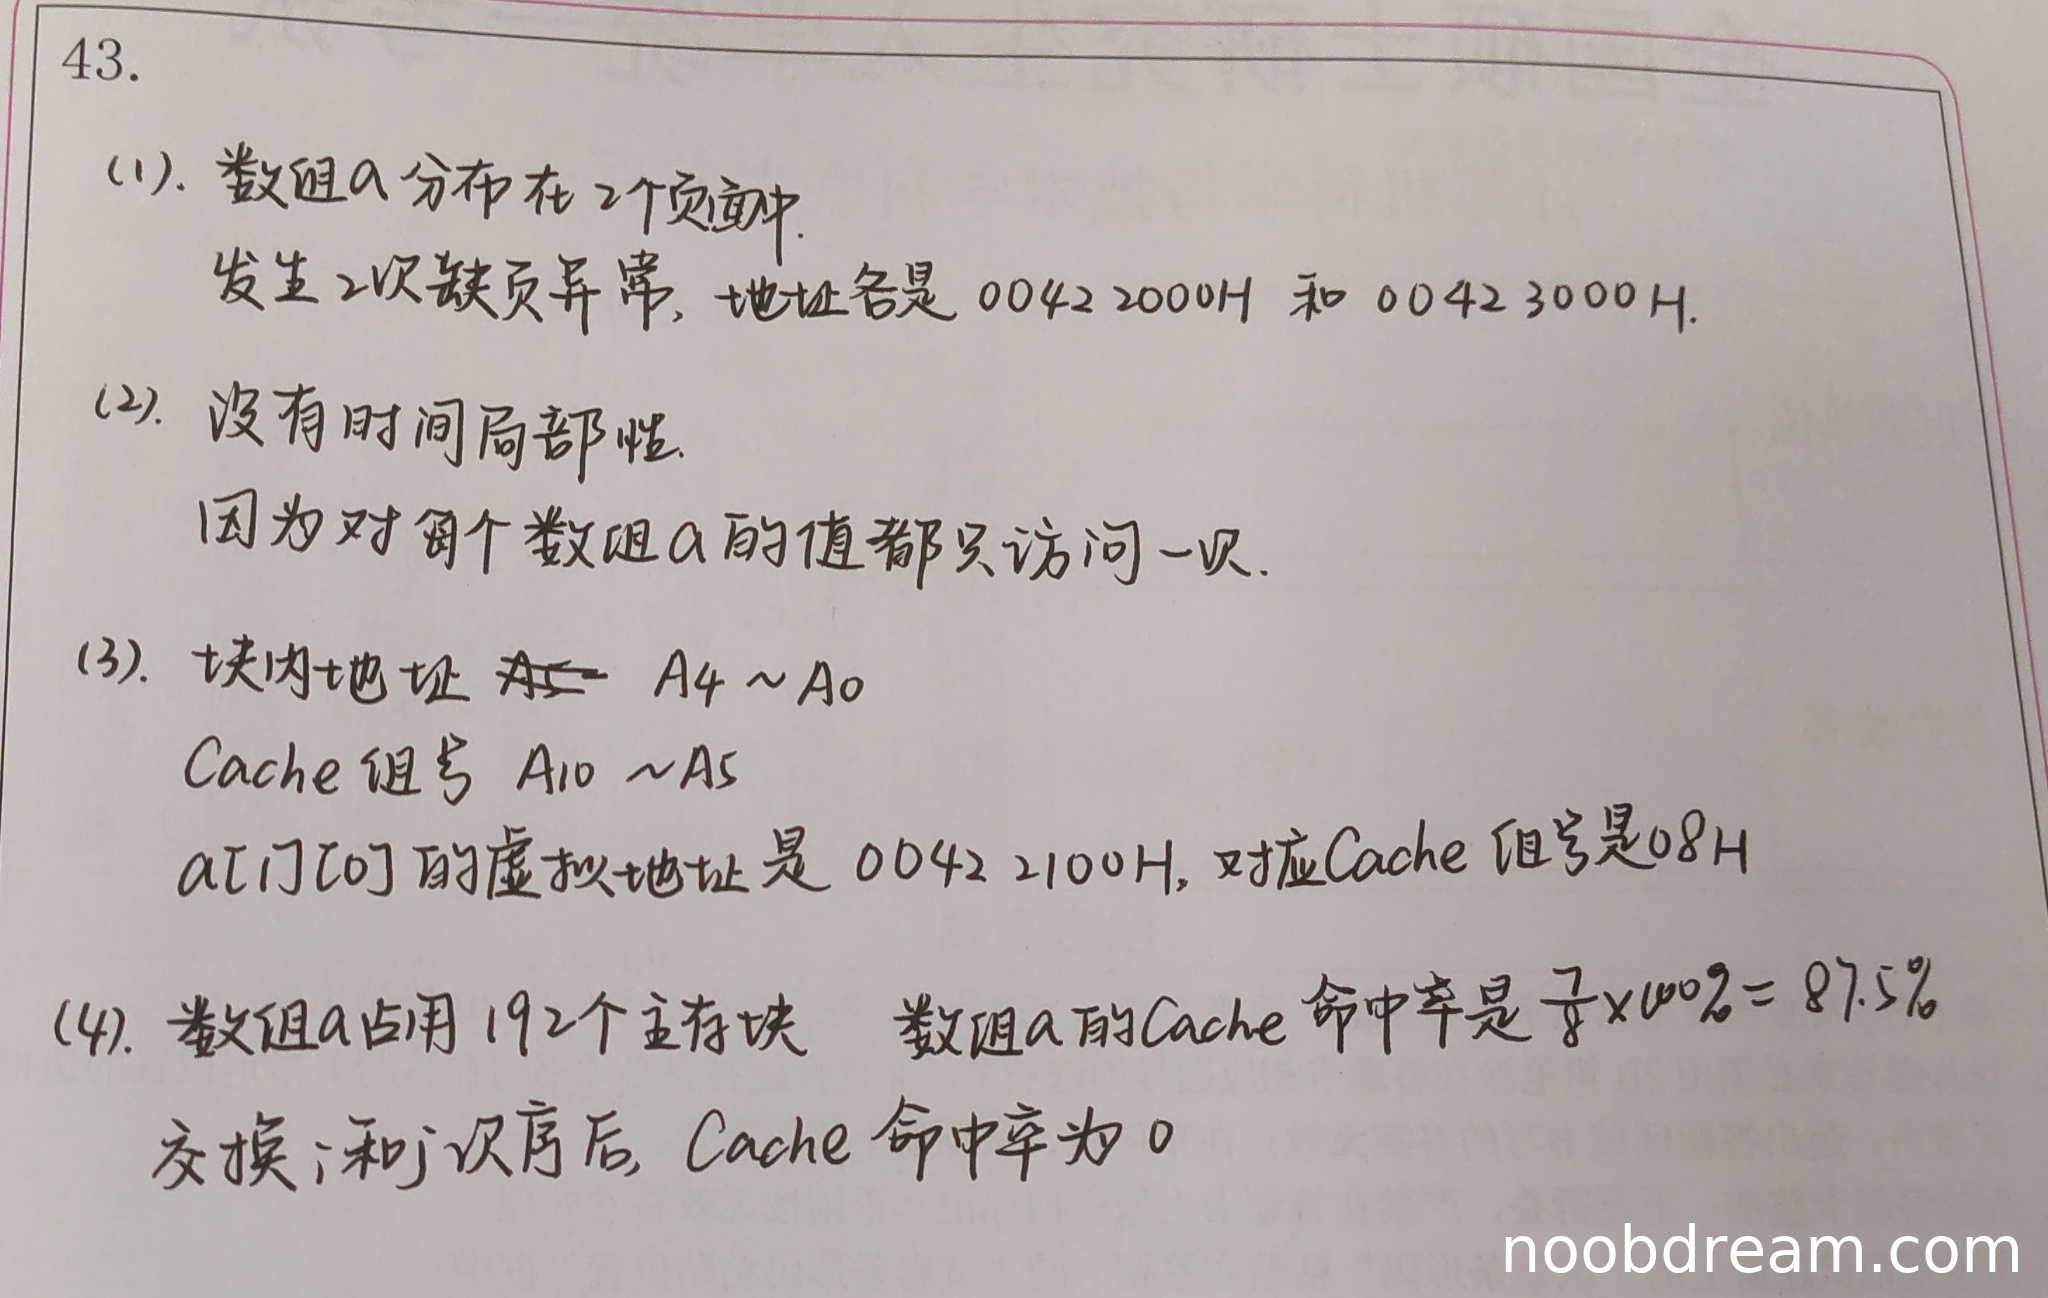 43.
(1). 数组a分布在2个页面中.
发生2次缺页异常, 地址各是 0042 2000H 和 0042 3000H.
(2). 没有时间局部性.
因为对每个数组a的值都只访问一次.
(3). 块内地址 A4 ~ A0
Cache 组号 A10 ~ A5
a[1][0] 的虚拟地址是 0042 2100H, 对应Cache 组号是08H
(4). 数组a占用192个主存块 数组a的Cache 命中率是 7/8 × 100% = 87.5%
交换i和j次序后, Cache 命中率为 0
noobdream.com